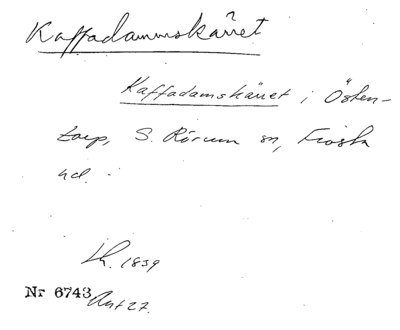 Kaffadammskärret
Kaffadamskärret i Östen-
torp, S. Rörum sn, Frosta
hd.
Lk. 1839
Nr 6743 Akt 27.